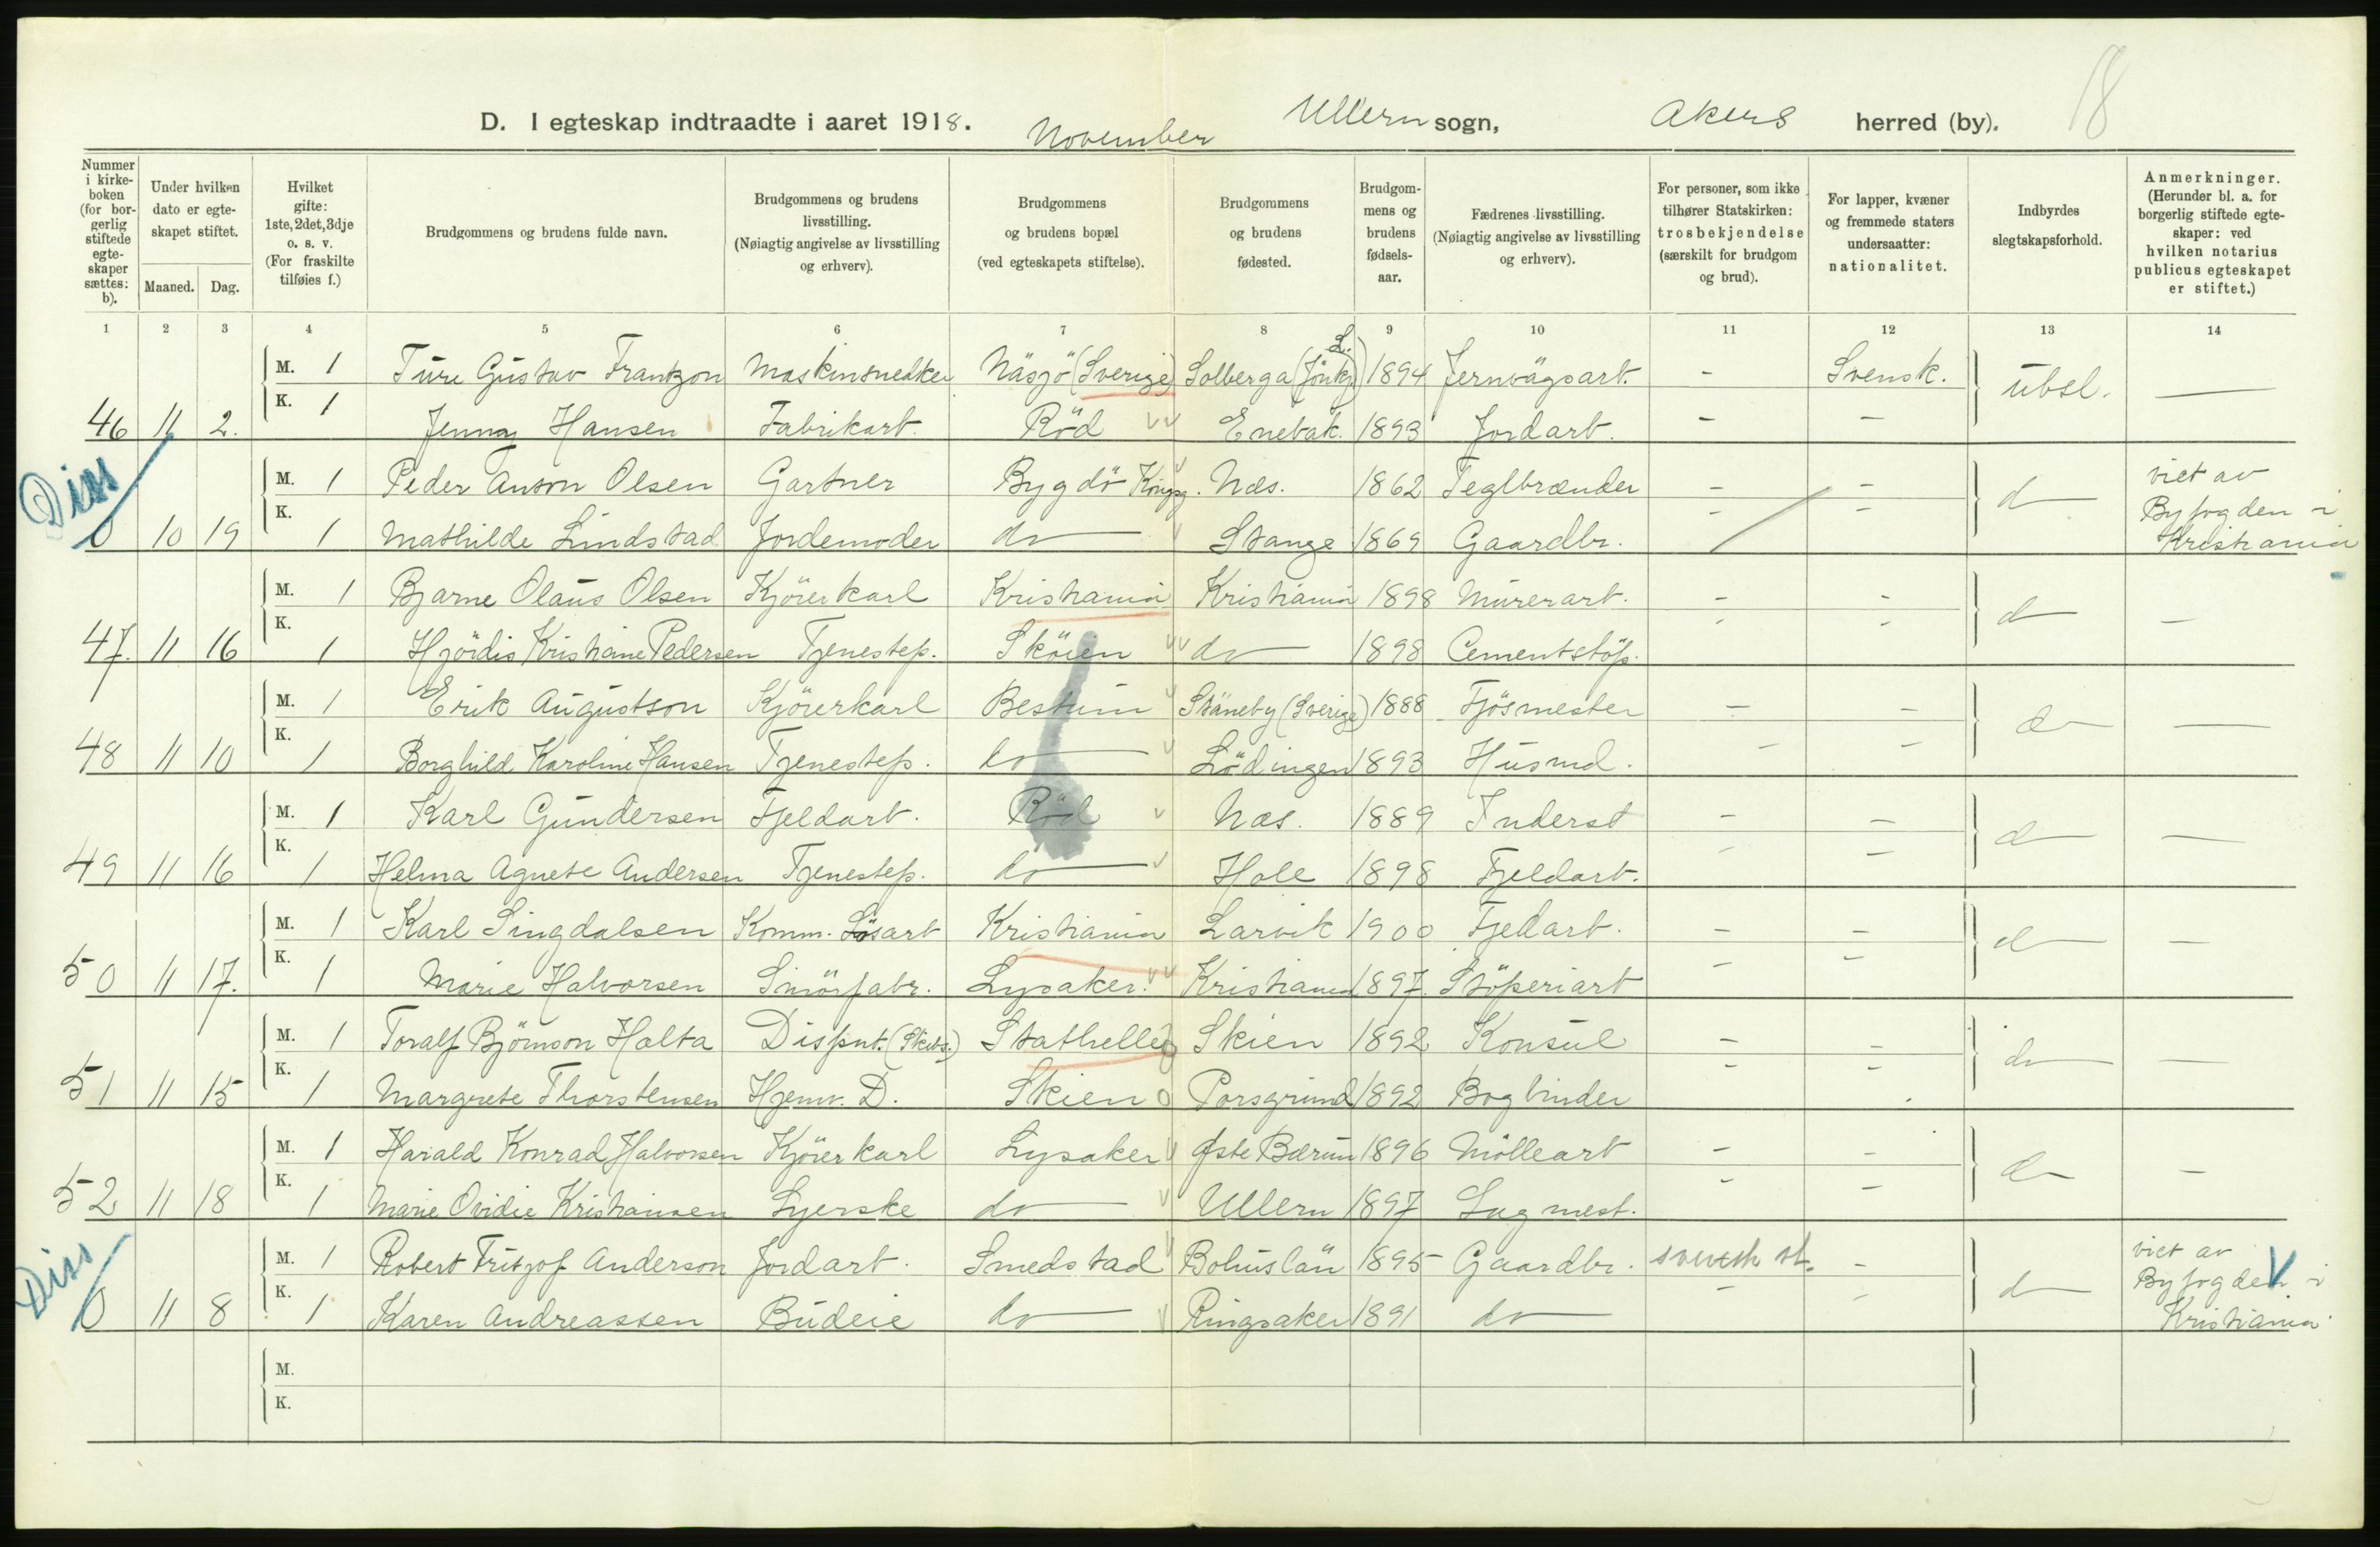 18
D. I egteskap indtraadte i aaret 1918. November Ullern sogn, Akers herred (by).
Nummer i kirkeboken (for borgerlig stiftede egteskaper sættes: b).
Under hvilken dato er egteskapet stiftet.
Maaned. Dag.
Hvilket gifte: 1ste, 2det, 3dje o. s. v. (For fraskilte tilføies f.)
Brudgommens og brudens fulde navn.
Brudgommens og brudens livsstilling. (Nøiagtig angivelse av livsstilling og erhverv).
Brudgommens og brudens bopæl (ved egteskapets stiftelse).
Brudgommens og brudens fødested.
Brudgommens og brudens fødselsaar.
Fædrenes livsstilling. (Nøiagtig angivelse av livsstilling og erhverv).
For personer, som ikke tilhører Statskirken: trosbekjendelse (særskilt for brudgom og brud).
For lapper, kvæner og fremmede staters undersaatter: nationalitet.
Indbyrdes slegtskapsforhold.
Anmerkninger. (Herunder bl. a. for borgerlig stiftede egteskaper: ved hvilken notarius publicus egteskapet er stiftet.)
1 2 3 4 5 6 7 8 9 10 11 12 13 14
M. 1 Ture Gustav Frantzon Maskinsnedker Näsjö (Sverige) Solberga (Jönkj. L.) 1894 Jernvägsart. - Svensk. ubsl. -
46 11 2. K. 1 Jenny Hansen Fabrikart. Röd Enebak. 1893 Jordart. - -
Diss
M. 1 Peder Anton Olsen Gartner Bygdö Kongsg. Næs. 1862 Teglbrænder - - d viet av
0 10 19 K. 1 Mathilde Lindstad Jordemoder do Stange 1869 Gaardbr. - - Byfogden i Kristiania
M. 1 Bjarne Olaus Olsen Kjörerkarl Kristiania Kristiania 1898 Murerart. - - d -
47. 11 16 K. 1 Hjördis Kristiane Pedersen Tjenestep. Sköien do 1898 Cementstöp. - -
M. 1 Erik Augustson Kjörerkarl Bestum Stäneby (Sverige) 1888 Fjösmester - - d -
48 11 10 K. 1 Borghild Karoline Hansen Tjenestep. do Lödingen 1893 Husmd. - -
M. 1 Karl Gundersen Fjeldart. Röd Næs. 1889 Inderst - - d -
49 11 16 K. 1 Helma Agnete Andersen Tjenestep. do Hole 1898 Fjeldart. - -
M. 1 Karl Singdalsen Komm. Løsart Kristiania Larvik 1900 Fjedart. - - d -
50 11 17. K. 1 Marie Halvorsen Smörfabr. Lysaker. Kristiania 1897. Stöperiart - -
M. 1 Toralf Björnson Holta Dispnt. (Skibs.) Stathelle Skien 1892 Konsul - - do -
51 11 15 K. 1 Margrete Thorstensen Hjemv. D. Skien Porsgrund 1892 Bogbinder - -
M. 1 Harald Konrad Halvorsen Kjörerkarl Lysaker Øste Bærum 1896 Mölleart - - d -
52 11 18 K. 1 Marie Ovidie Kristiansen Syerske do Ullern 1897 Sagmest. - -
Diss
M. 1 Robert Fritjof Anderson Jordart. Smedstad Bohuslän 1895 Gaardbr. svensk st. - d viet av
0 11 8 K. 1 Karen Andreassen Budeie do Ringsaker 1891 do - - Byfogden i Kristiania
M.
K.